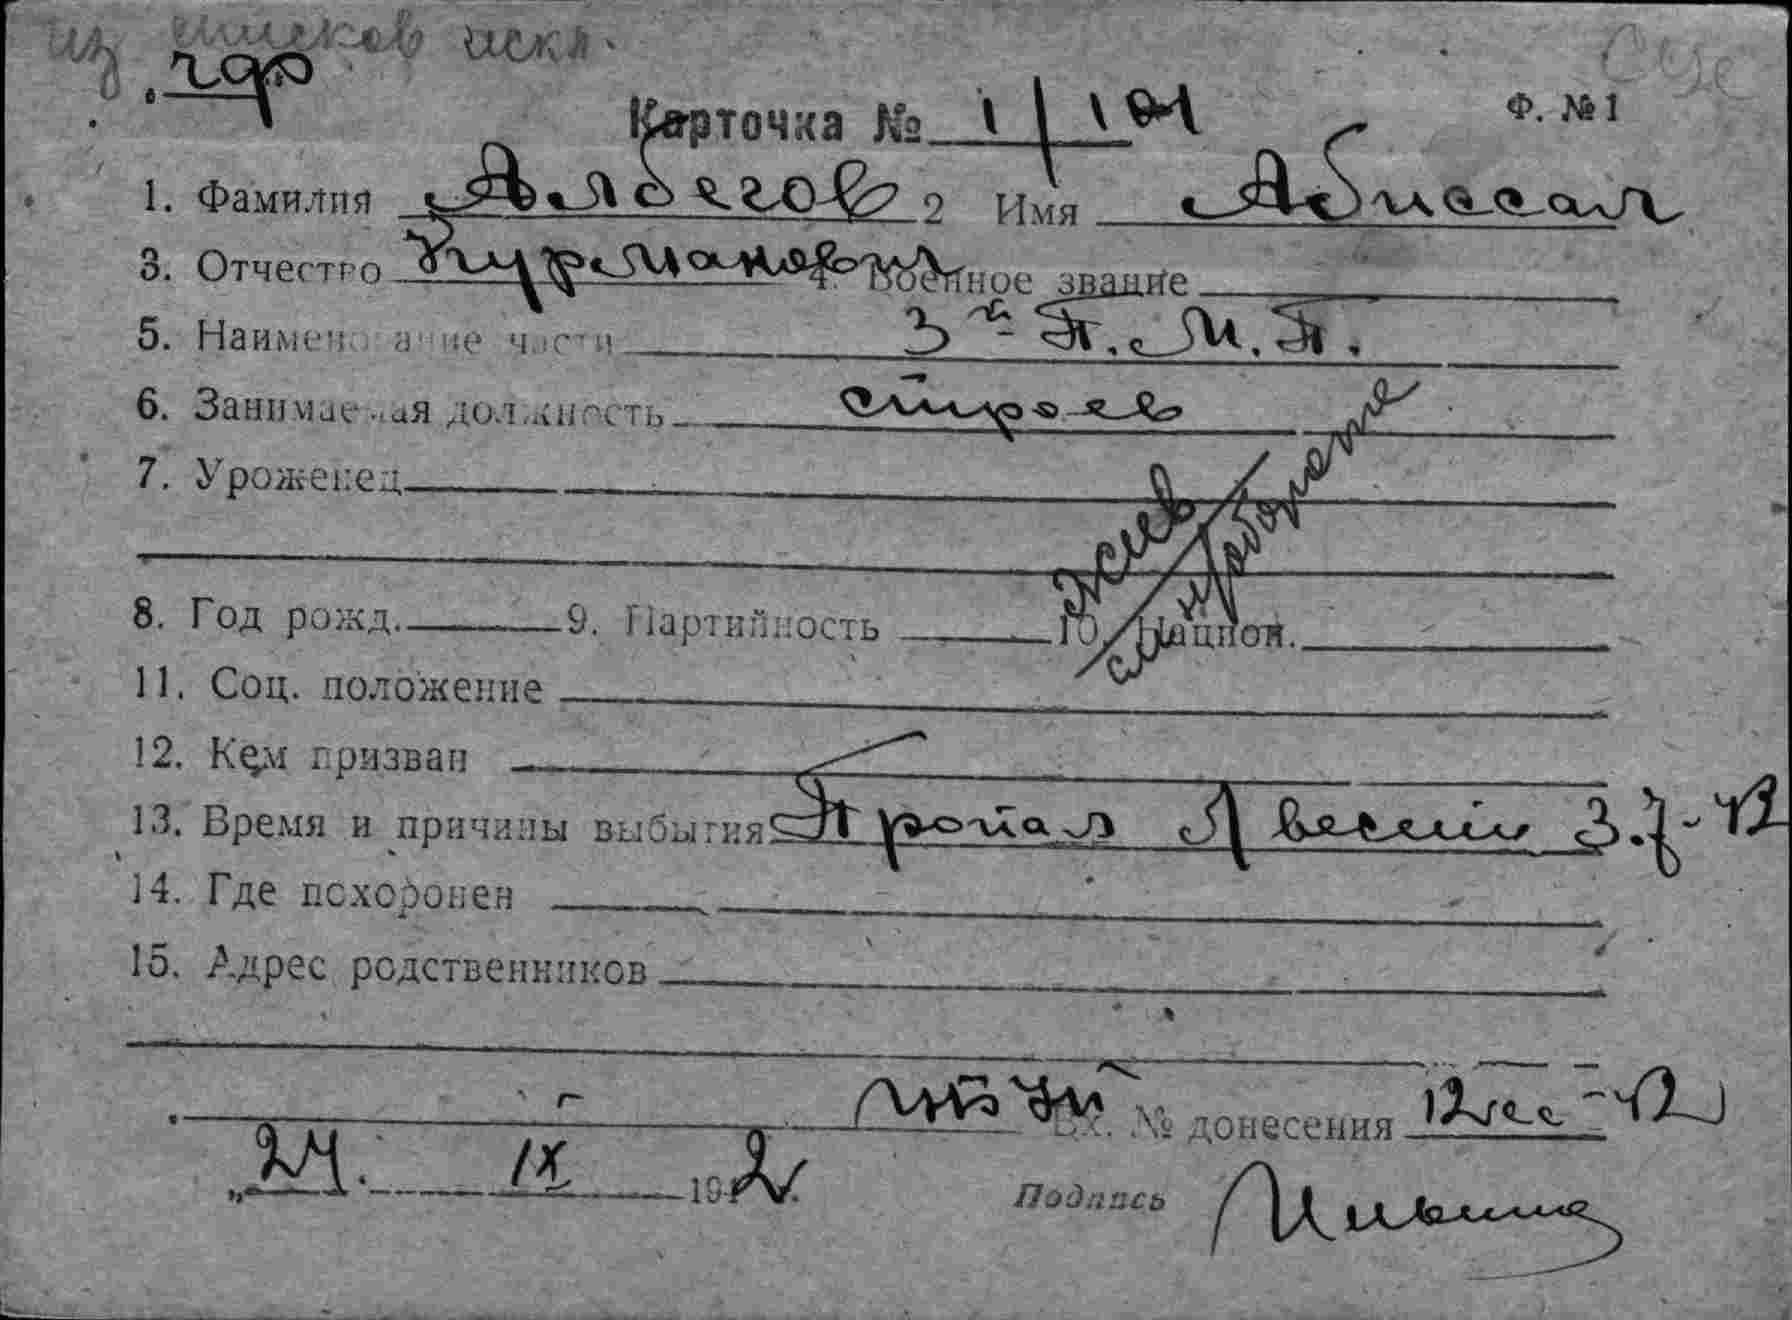 из списков искл.
Карточка № 1/101 Ф. № 1
1. Фамилия Албегов 2 Имя Абисал
3. Отчество 4. Военное звание
5. Наименование части 3й П.М.П.
6. Занимаемая должность строев
7. Уроженец
жив
8. Год рожд. 9. Партийность 10. Национ.
11. Соц. положение
12. Кем призван
13. Время и причины выбытия Пропал без вести 3.7-42
14. Где похоронен
15. Адрес родственников
Вх. № донесения
„24. IX 1942.
Подпись